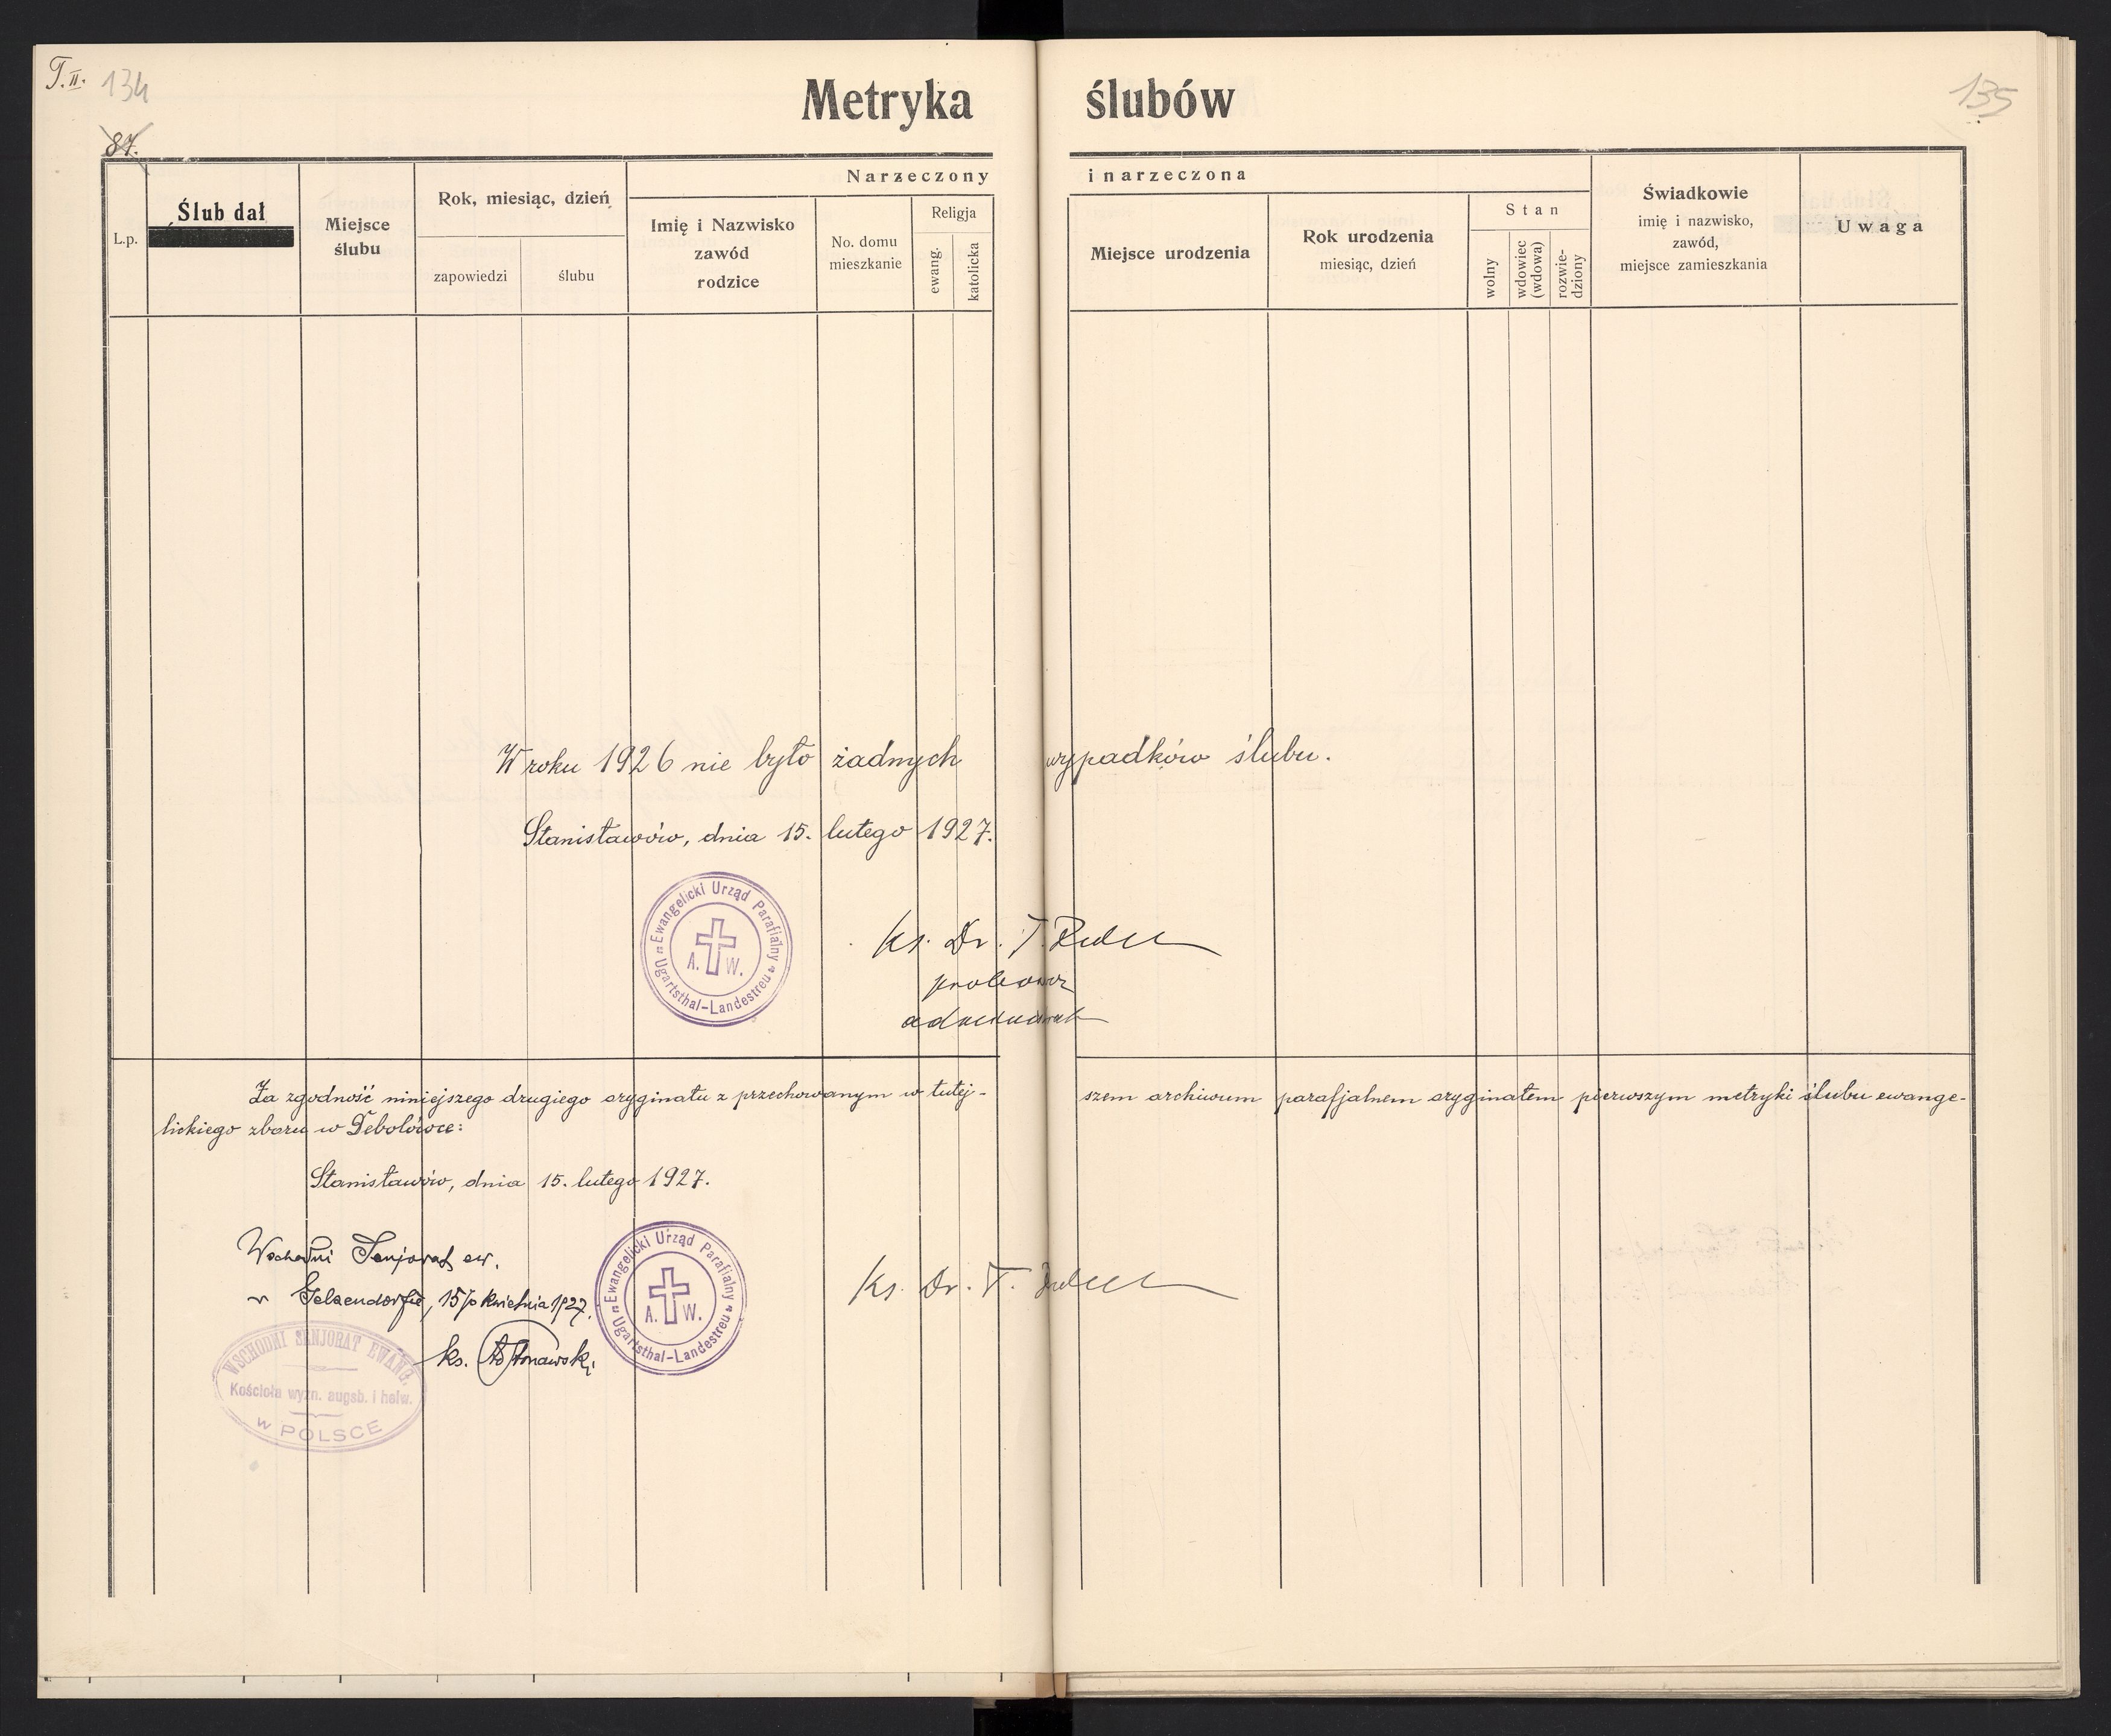 T. II. 134
135
87.
Metryka ślubów
L.p.
Ślub dał
Miejsce
ślubu
Rok, miesiąc, dzień
zapowiedzi
ślubu
Narzeczony i narzeczona
Imię i Nazwisko
zawód
rodzice
No. domu
mieszkanie
Religja
ewang.
katolicka
Miejsce urodzenia
Rok urodzenia
miesiąc, dzień
Stan
wolny
wdowiec
(wdowa)
rozwie-
dziony
Świadkowie
imię i nazwisko,
zawód,
miejsce zamieszkania
Uwaga
W roku 1926 nie było żadnych wypadków ślubu.
Stanisławów, dnia 15. lutego 1927.
Ewangelicki Urząd Parafialny
Ugartsthal–Landestreu
A. W.
Ks. Dr. T.
Za zgodność niniejszego drugiego oryginału z przechowanym w tutej- szem archiwum parafjalnem oryginałem pierwszym metryki ślubu ewange-
lickiego zboru w Debolówce:
Stanisławów, dnia 15. lutego 1927.
Wschodni Senjorat ew.
w Gelsendorfie, 15/o kwietnia 1927.
ks.
Ewangelicki Urząd Parafialny
Ugartsthal–Landestreu
A. W.
Ks. Dr. T.
WSCHODNI SENJORAT EWANG.
Kościoła wyzn. augsb. i helw.
w POLSCE